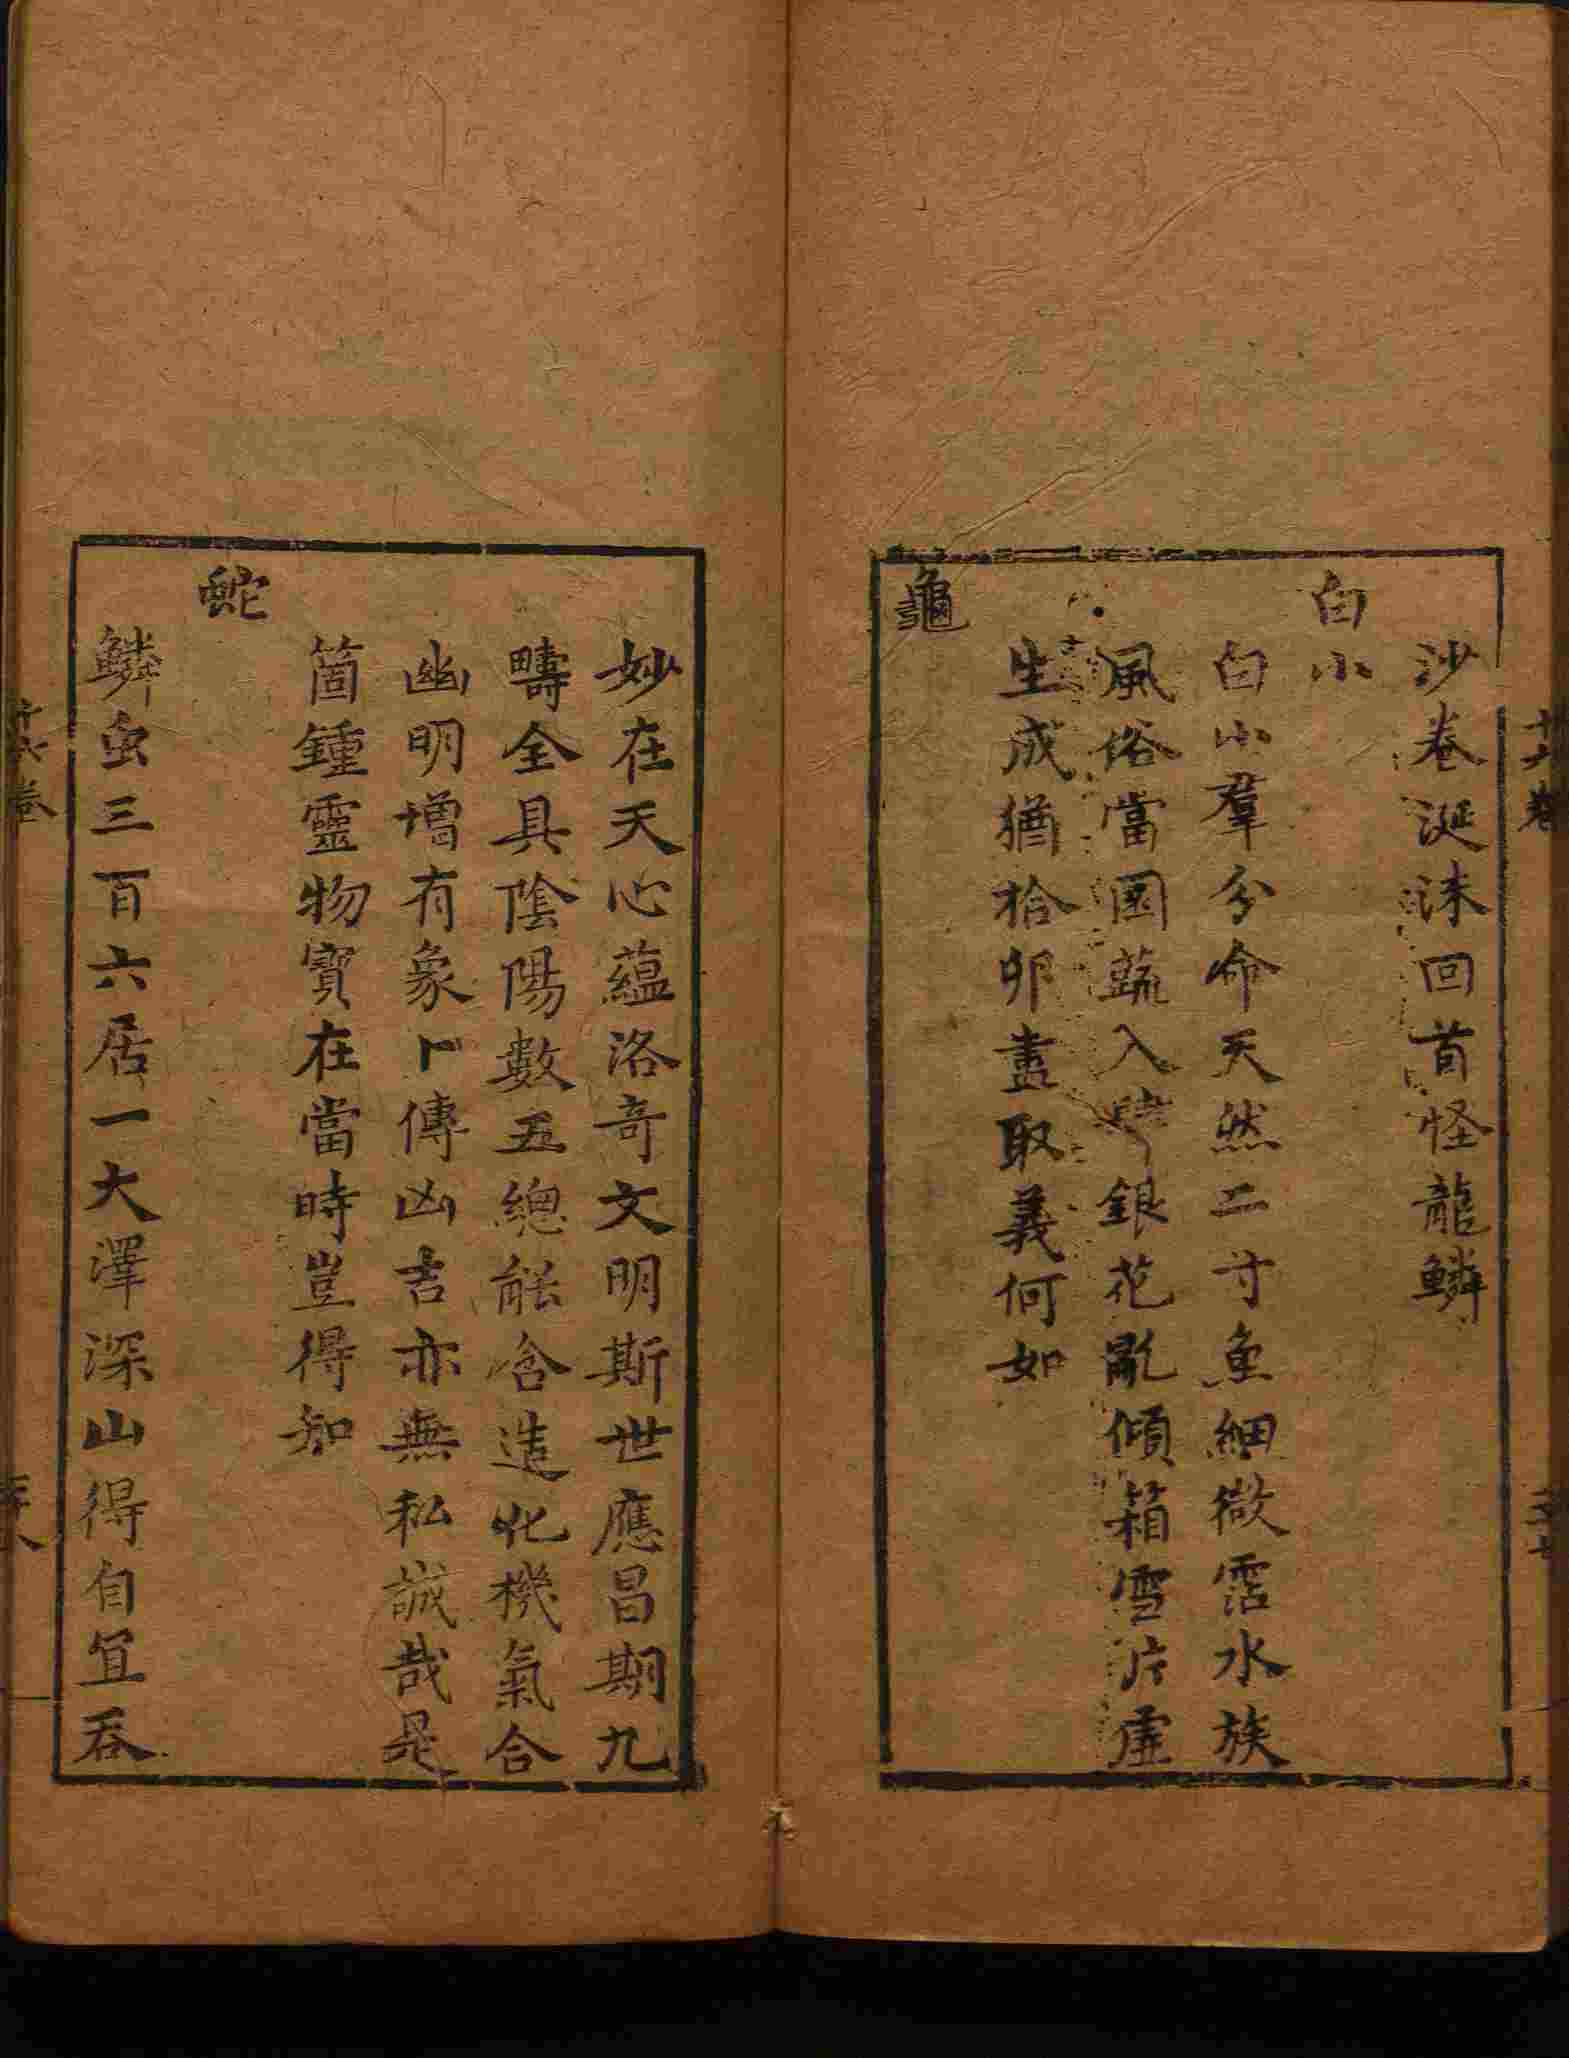 沙卷涎沫回首怪龍鱗
白小
白小羣分命天然二寸魚細微霑水族
風俗當園蔬入肆銀花亂傾箱雪片虛
生成猶拾卵盡取義何如
龜
妙在天心蘊洛奇文明斯世應昌期九
疇全具陰陽數五總能含造化機氣合
幽明增有象卜傳凶吉亦無私誠哉是
箇鍾靈物寳在當時豈得知
蛇
鱗虫三百六居一大澤深山得自宜吞
十六卷
十六卷